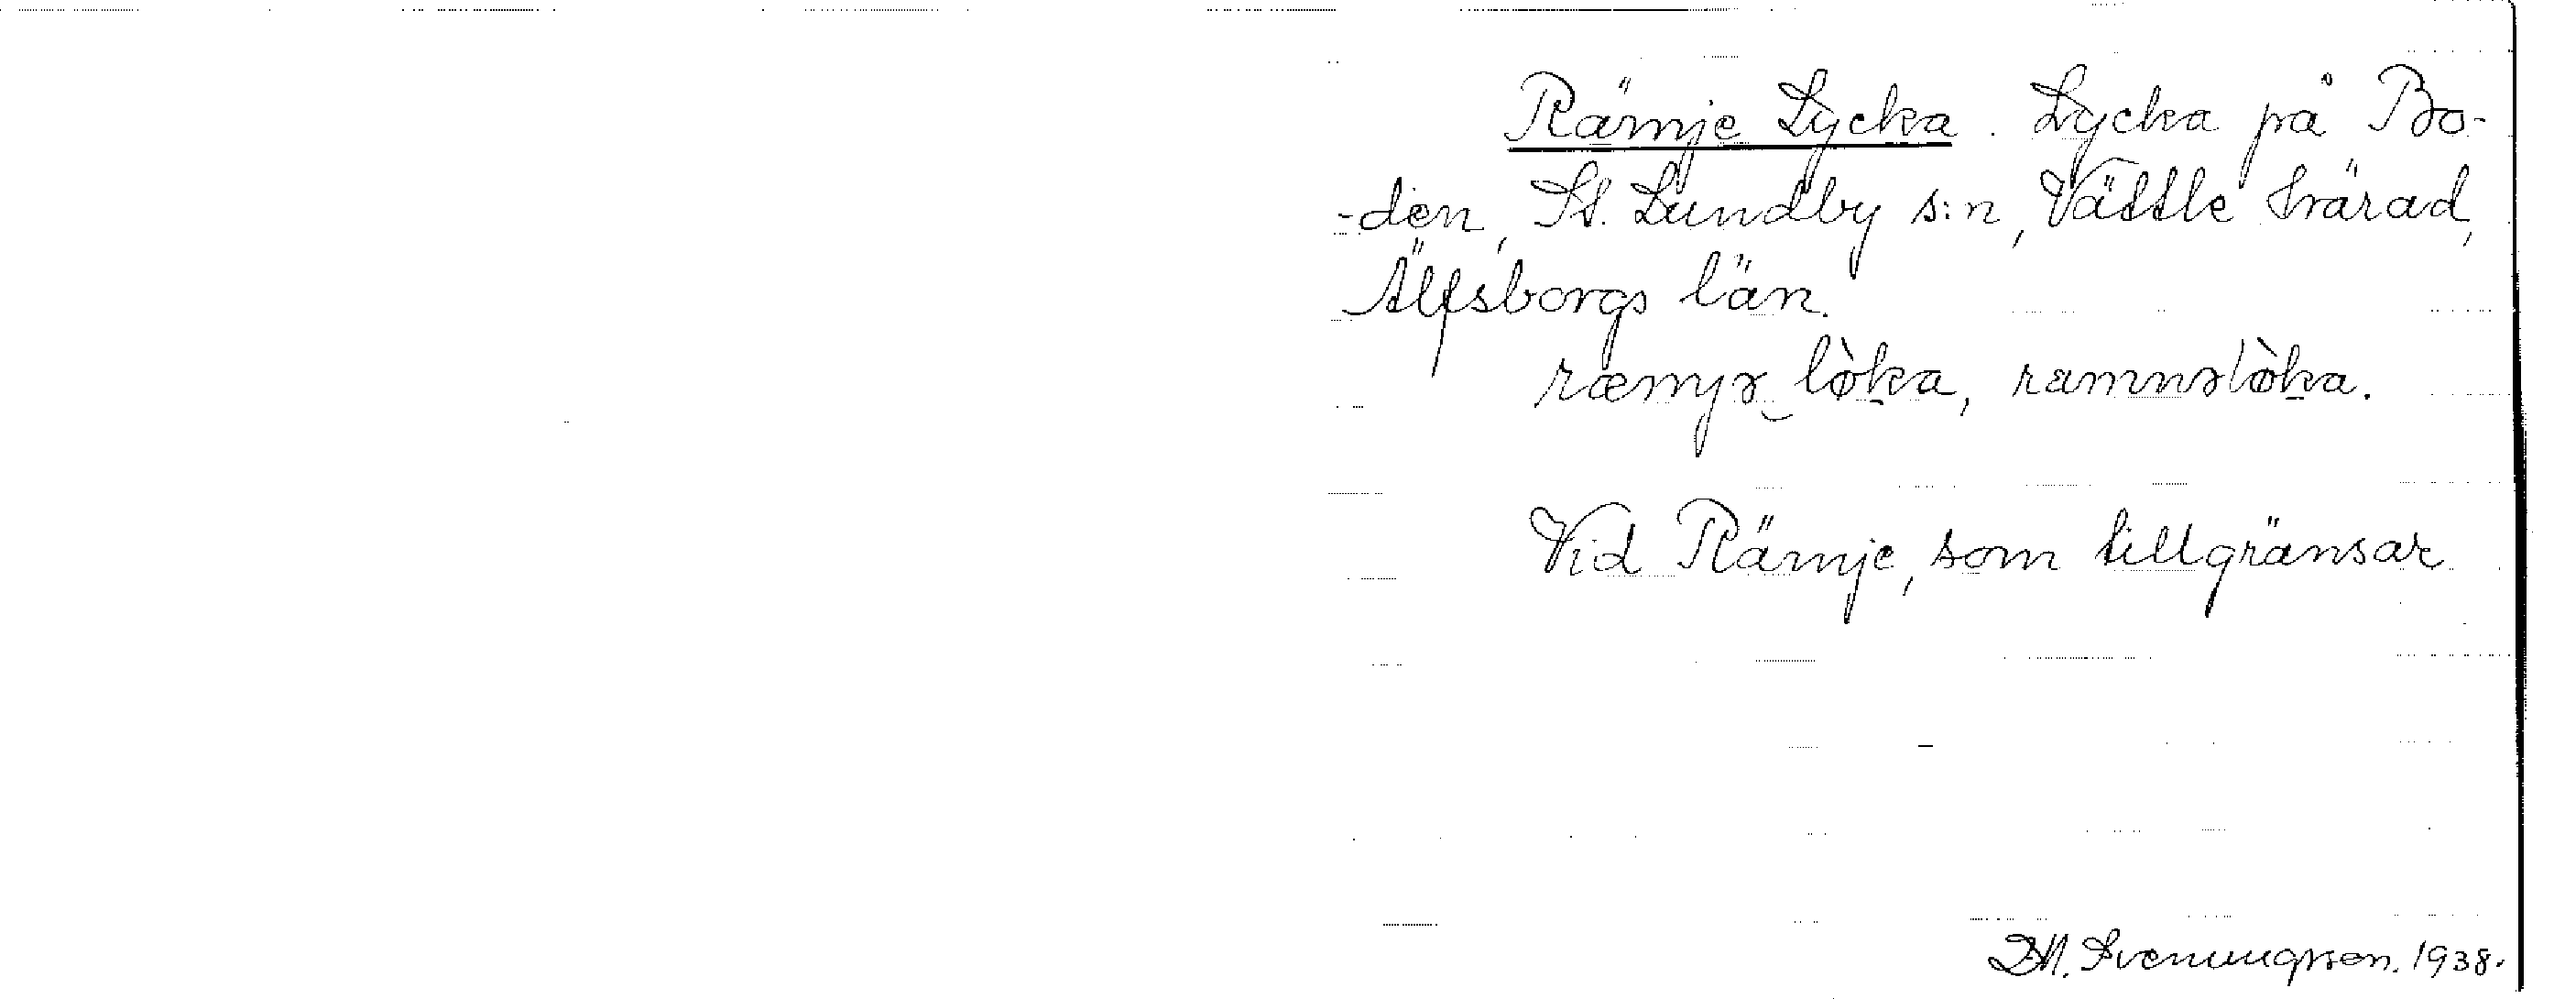 Rämje Lycka. Lycka på Bo-
-den, St. Lundby s:n, Vättle härad,
Älfsborgs län.
ræmjɤ‿lø̀ka, ramnɤlø̀ka.
Vid Rämje, som tillgränsar
D.M. Svenungsson. 1938.